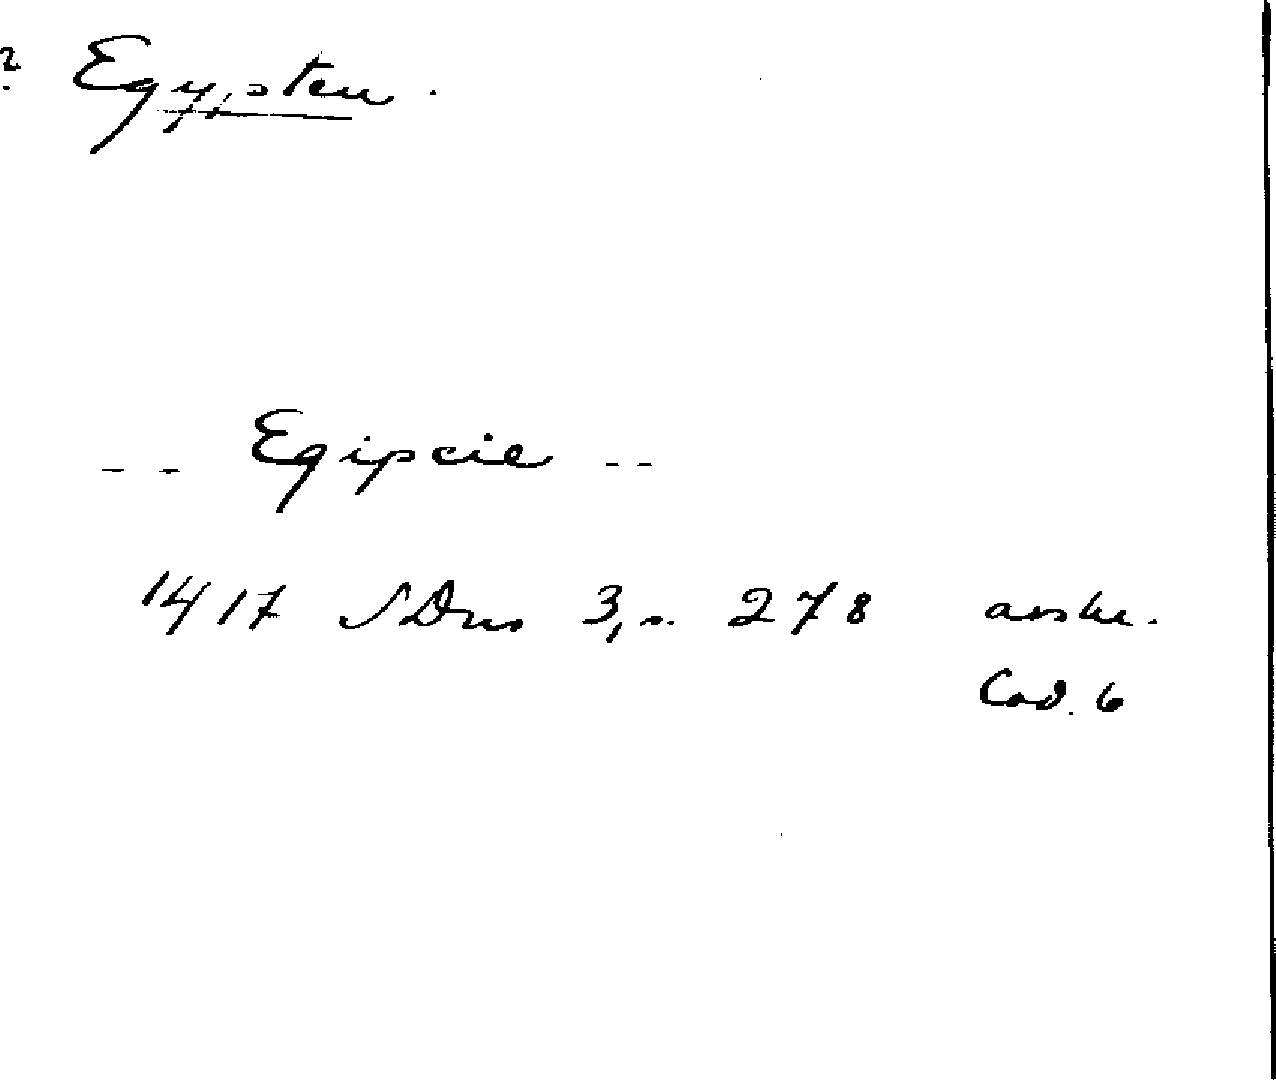 ? Egypten.
- - Egipcie - -
1417 SDns 3, s. 278 avskr.
Cod. 6